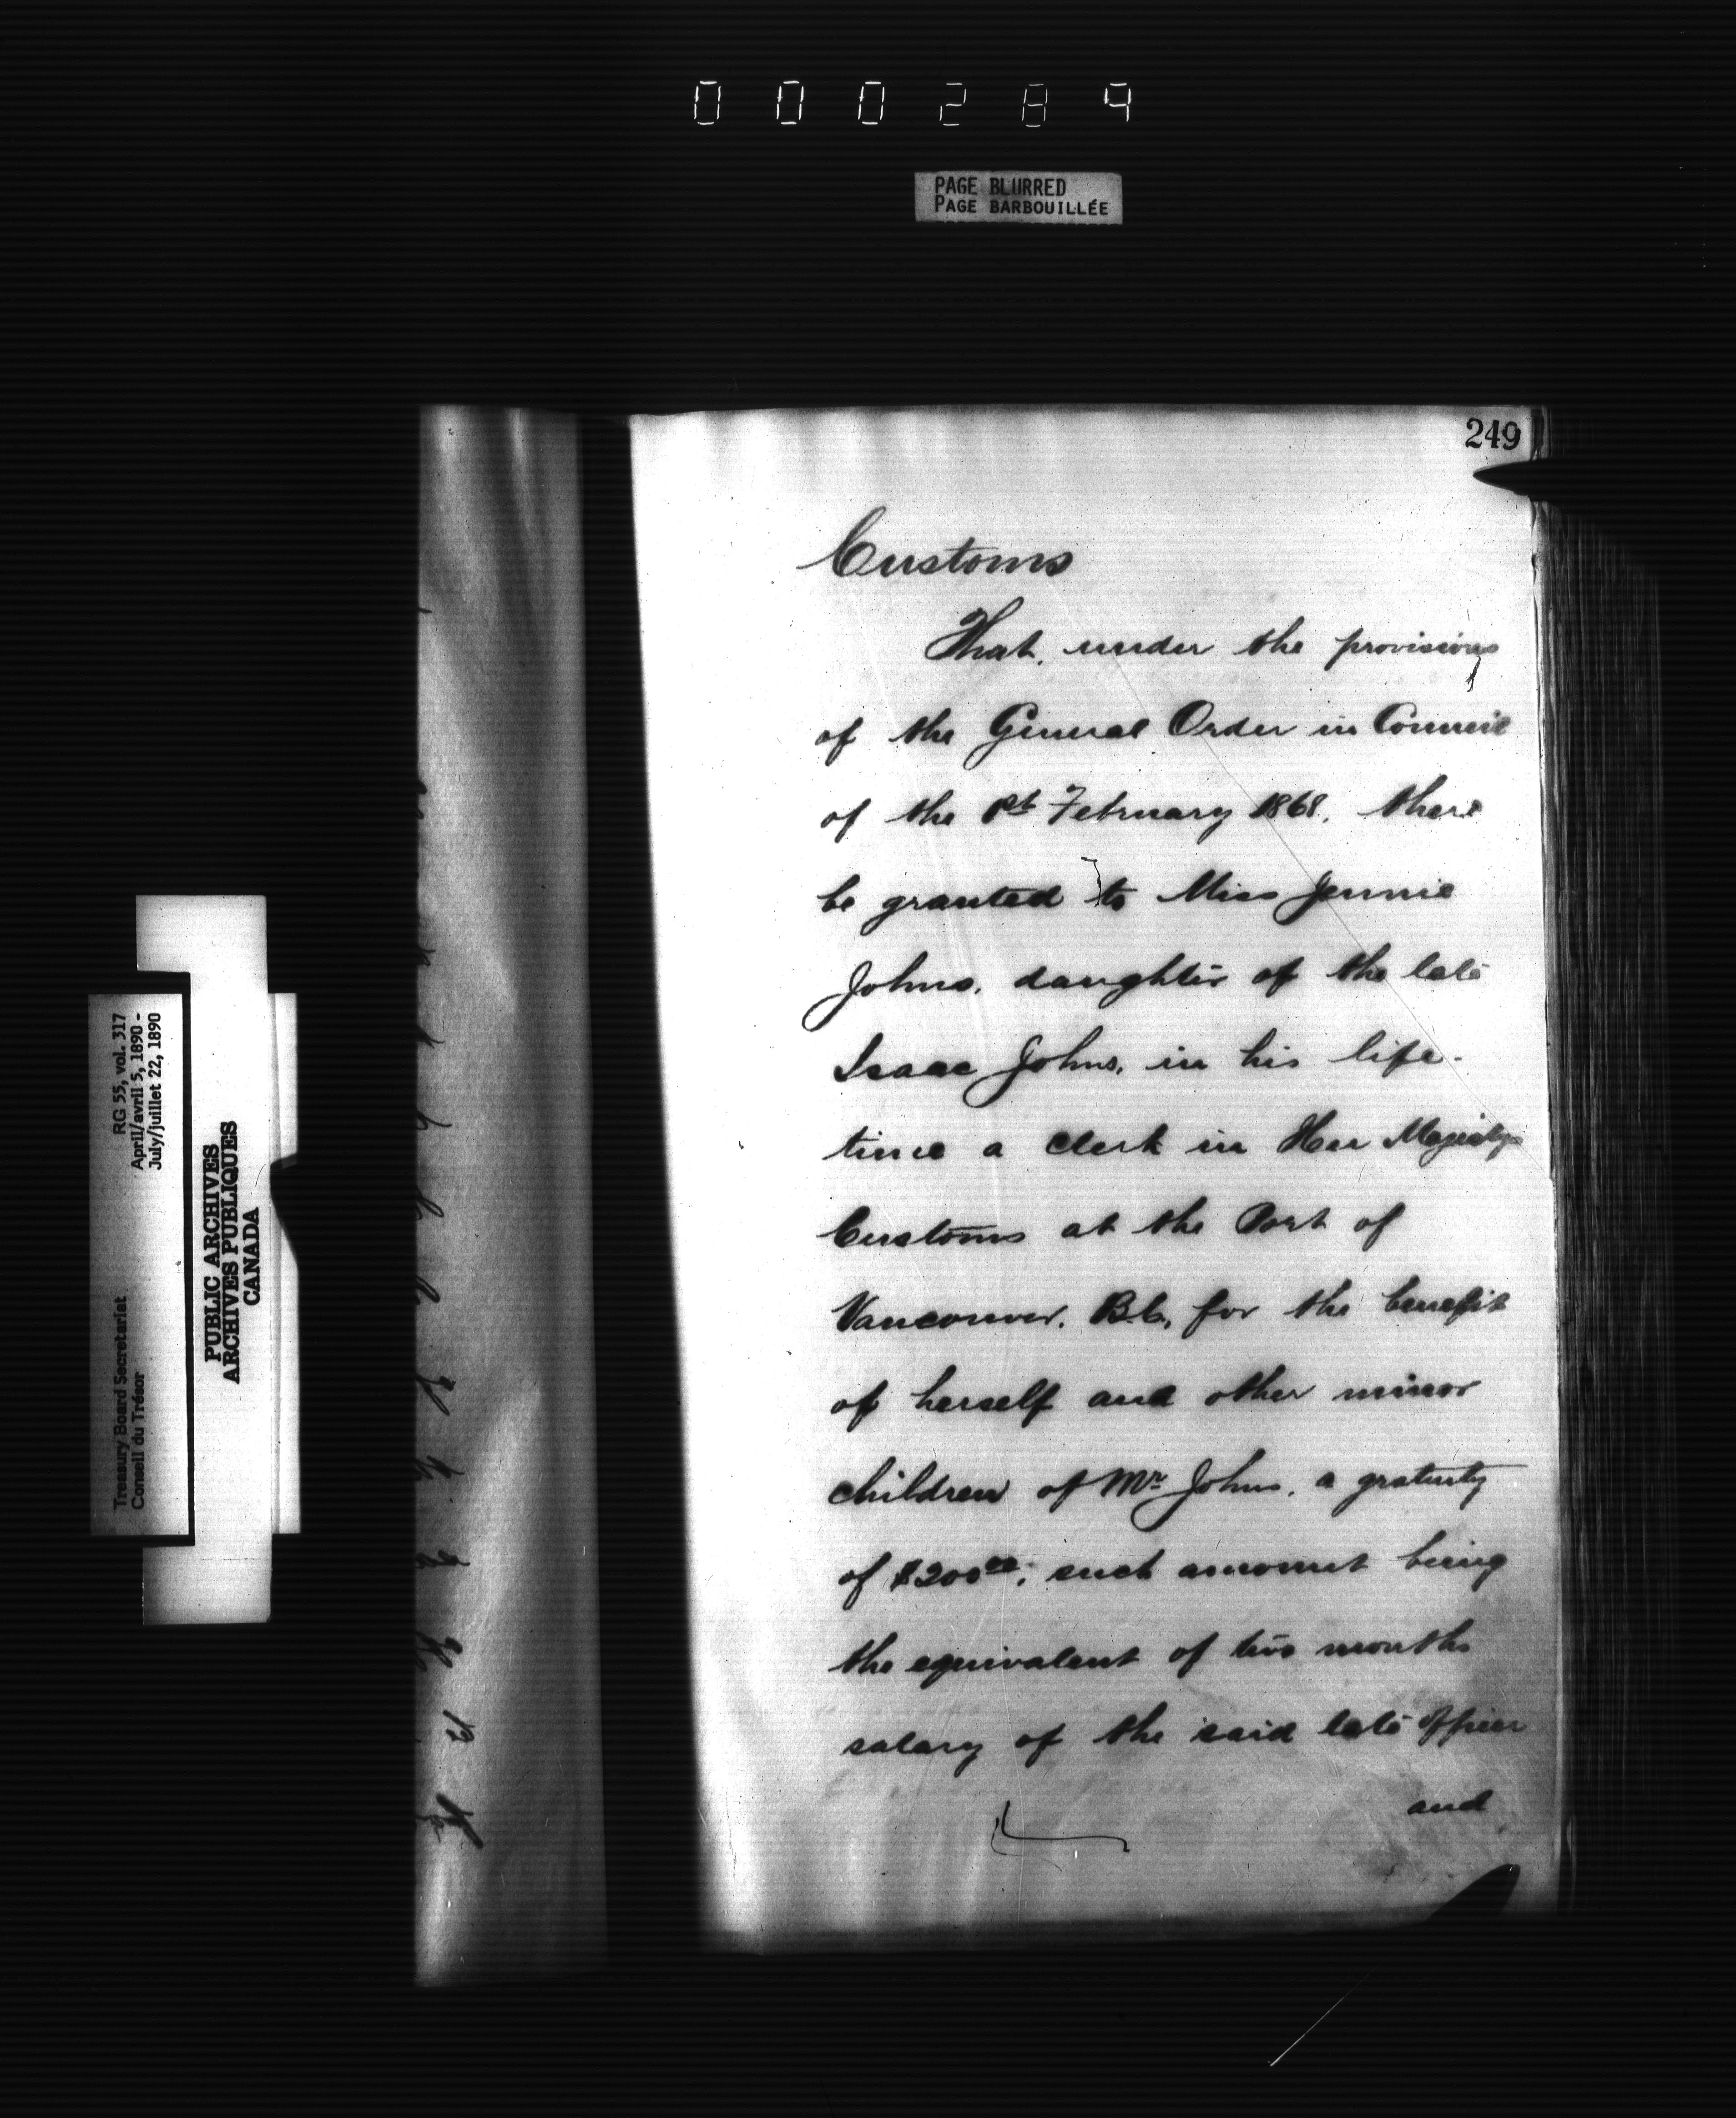 000284
PAGE BLURRED
PAGE BARBOUILLÉE
249
Customs
That, under the provisions
of the General Order in Council
of the 1st February 1868, there
be granted to Miss Jennie
Johns, daughter of the late
Isaac Johns, in his life-
time a Clerk in Her Majestys
Customs at the Port of
Vancouver, B.C., for the benefit
of herself and other minor
children of Mr Johns, a gratuity
of $200.00; such amount being
the equivalent of two months
salary of the said late officer
and
RG 55, vol. 317
April/avril 5, 1890 -
July/juillet 22, 1890
Treasury Board Secretariat
Conseil du Trésor
PUBLIC ARCHIVES
ARCHIVES PUBLIQUES
CANADA